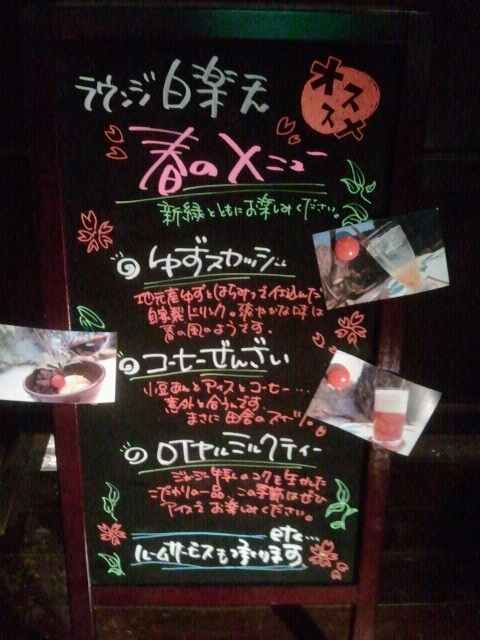 ラウンジ白楽天
オススメ
春のメニュー
新緑とともにお楽しみください。
ゆずスカッシュ
地元産ゆずとはちみつで仕込んだ
自家製ドリンク。爽やかな味は
春の風のようです。
コーヒーぜんざい
小豆あんとアイスとコーヒー…
意外と合うんです。
まさに田舎のスイーツ。
OTヤルミルクティー
ジャージー牛乳のコクを生かした
こだわりの一品。この季節はぜひ
アイスでお楽しみください。
etc…
ルームサービスも承ります